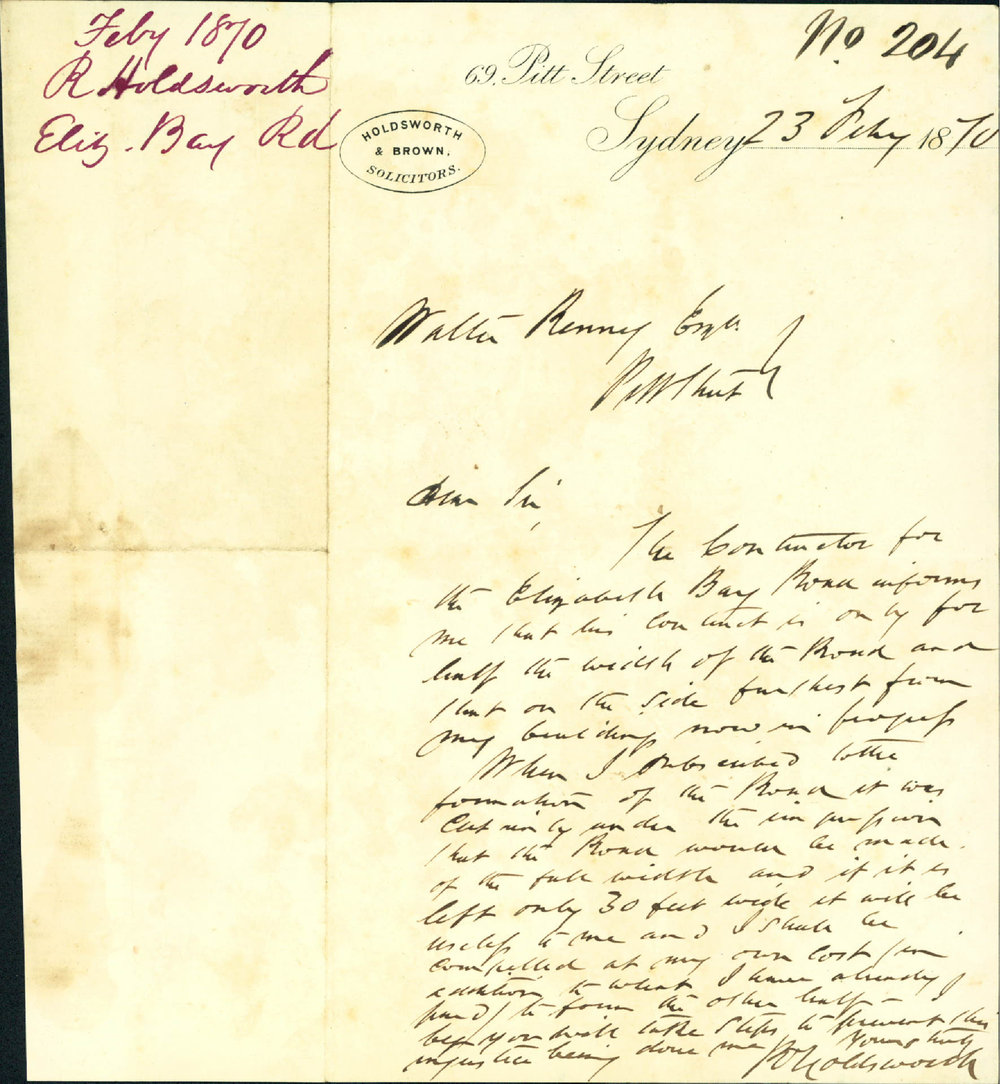 Feby 1870
R Holdsworth
Eliz. Bay Rd
No. 204
69, Pitt Street
Sydney 23 Feby 1870
HOLDSWORTH
& BROWN,
SOLICITORS.
Walter Renny Esqr.
Pitt Street
Dear Sir,
The Contractor for
the Elizabeth Bay Road informs
me that his Contract is only for
half the width of the Road and
that on the side furthest from
my building now in progress
When I subscribed to the
formation of the Road it was
Certainly under the impression
that the Road would be made
of the full width and if it is
left only 30 feet wide it will be
useless to me and I shall be
compelled at my own cost (in
addition to what I have already
paid) to form the other half - I
beg you will take steps to prevent this
injustice being done me Yours truly
R Holdsworth